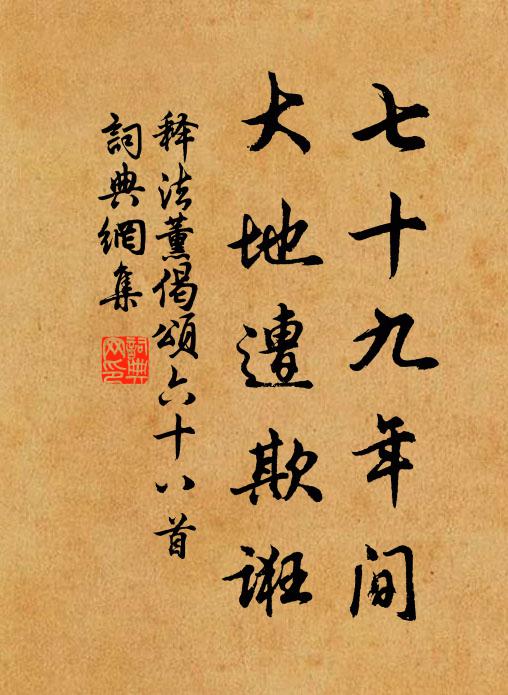 七十九年间
大地遭欺诳
释法薰偈頌六十八首
詞典網集
詞典
网印